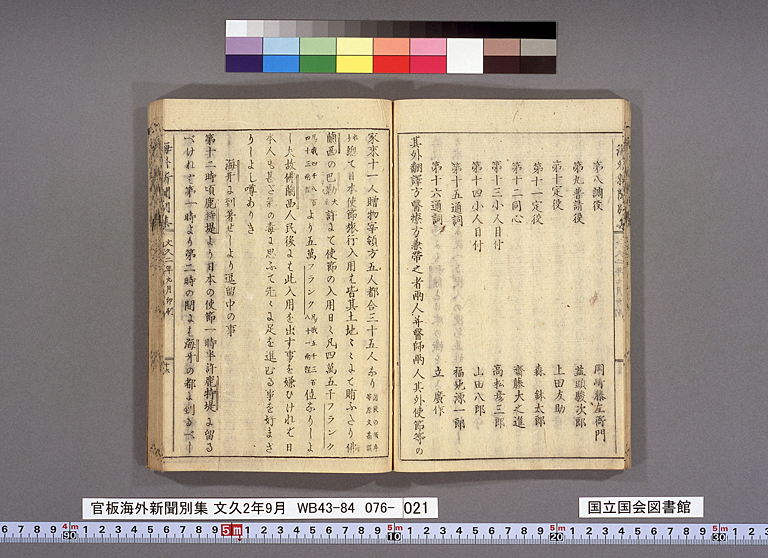 第八調役 岡﨑藤左衛門
第九普請役 益頭駿次郎
第十定役 上田友助
第十一定役 森鉢太郎
第十二同心 齋藤大之進
第十三小人目付 高松彦三郎
第十四小人目付 山田八郎
第十五通詞 福地源一郎
第十六通詞 立廣作
其外翻譯方醫療方兼帶之者兩人并醫師兩人其外使節等の
家來十一人贈物宰領方五人都合三十五人なり
總て日本使節旅行入用も皆其土地々々よて賄ふさり佛
蘭西の巴勒よて使節の入用日々凡四萬五千フランク
より五萬フランク位なりしよ
し夫故佛蘭西人民後よも此入用を出す事を嫌ひけれむ日
本人も甚ざ氣の毒よ思ふて先々よ足を進むる事を好まざ
りしよし噂ありき
海牙よ到着せしより逗留中の事
第十二時頃鹿特堤より日本の使節一時半許鹿特堤よ留る
べけれむ第一時より第二時の間よも海牙の都よ到るべし
海外新聞別集 文久二年九月 官板
官板海外新聞別集 文久2年9月 WB43-84 076- 021
国立国会図書館